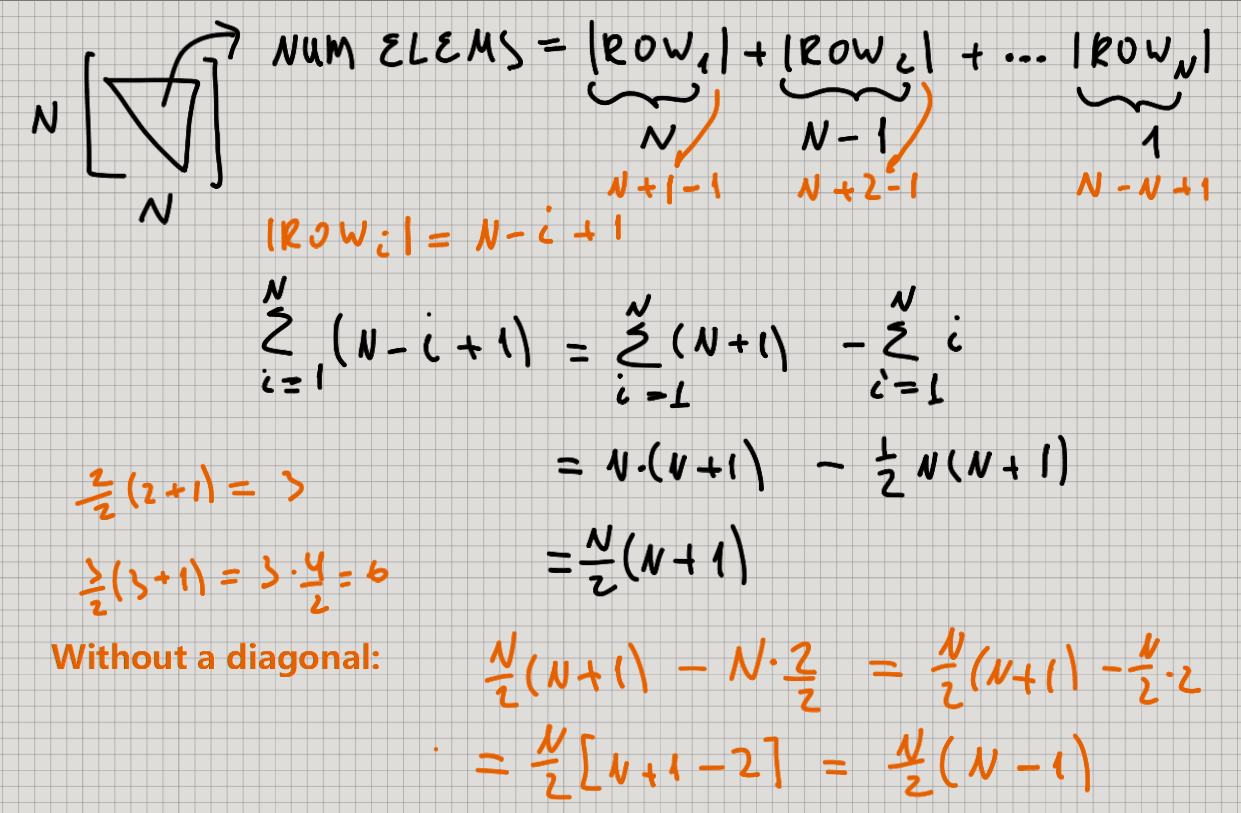 NUM ELEMS = |ROW₁| + |ROW₂| + ... |ROW_N|
N
N
N - 1
1
N + 1 - 1
N + 2 - 1
N - N + 1
N
|ROWᵢ| = N - i + 1
∑_{i=1}^{N} (N - i + 1) = ∑_{i=1}^{N} (N + 1) - ∑_{i=1}^{N} i
= N·(N + 1) - ½ N(N + 1)
2/2 (2 + 1) = 3
= N/2 (N + 1)
3/2 (3 + 1) = 3 · 4/2 = 6
Without a diagonal:
N/2 (N + 1) - N · 2/2 = N/2 (N + 1) - N/2 · 2
= N/2 [N + 1 - 2] = N/2 (N - 1)